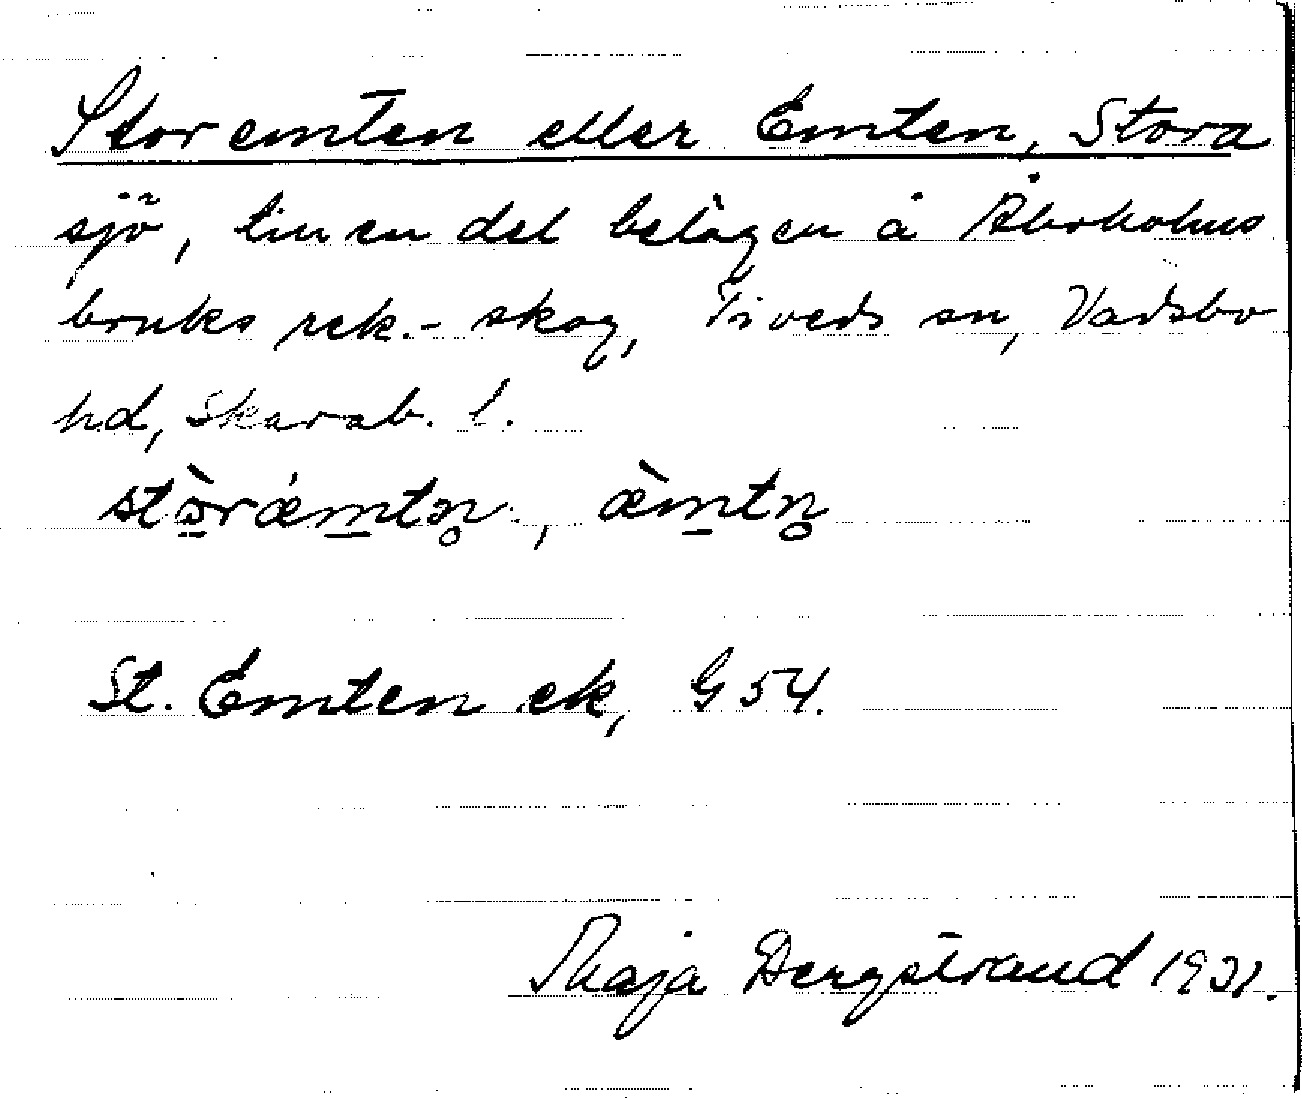 Storemten eller Emten, Stora
sjö, till en del belägen å Aboholms
bruks rek.-skog, Tiveds sn, Vadsbo
hd, Skarab. l.
stòrǽmtn̥, æ̀mtn̥
St. Emten ek, G 54.
Maja Bergstrand 1931.